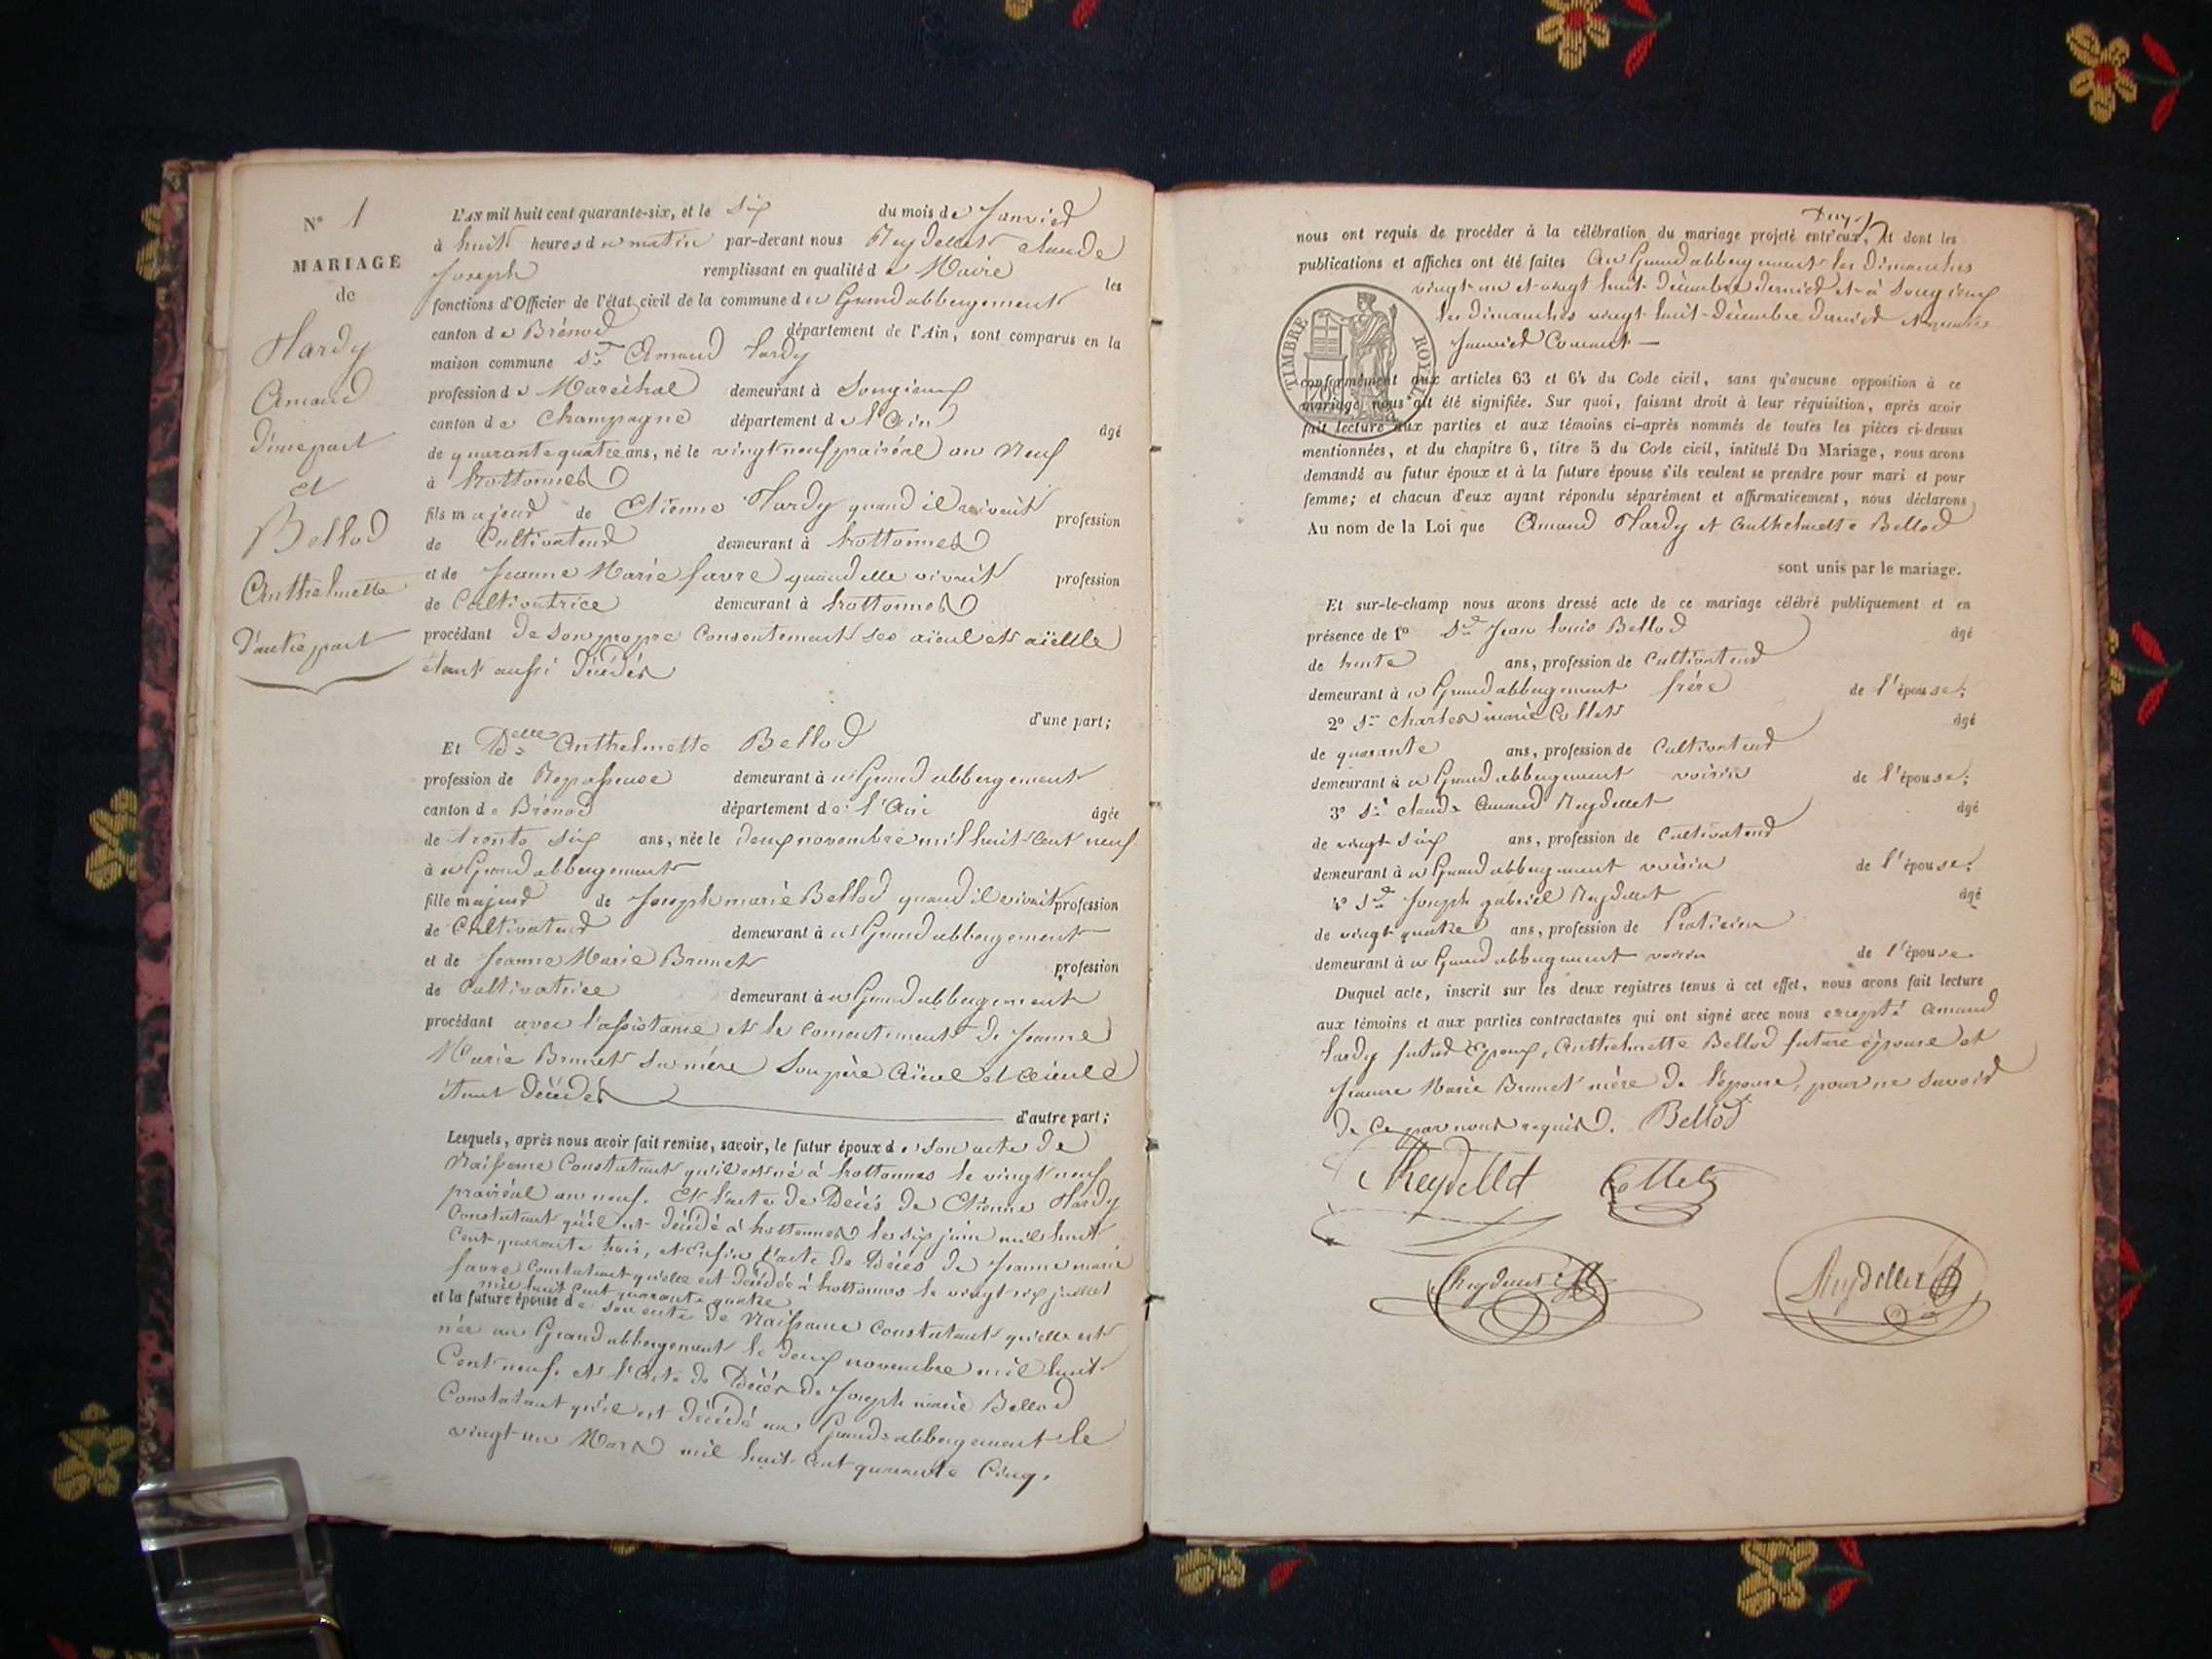 N° 1
MARIAGE
de
Hardy
Amand
d'une part
et
Bellod
Anthelmette
d'autre part
L'AN mil huit cent quarante-six, et le six du mois de Janvier
à huit heures du matin par-devant nous Reydellet Claude
Joseph remplissant en qualité de Maire les
fonctions d'Officier de l'état civil de la commune du Grand abbergement
canton de Brénod département de l'Ain, sont comparus en la
maison commune Sr Amand hardy
profession de Maréchal demeurant à Songieux
canton de Champagne département de l'Ain âgé
de quarante quatre ans, né le vingt neuf prairéal an neuf
à hottonnes
fils majeur de Etienne Hardy quand il vivait profession
de Cultivateur demeurant à hottonnes
et de Jeanne Marie favre quand elle vivait profession
de Cultivatrice demeurant à hottonnes
procédant de son propre Consentement ses aïeul et aïeulle
étant aussi décédés
d'une part;
Et Delle Anthelmette Bellod
profession de Repasseuse demeurant à u Grand abbergement
canton de Brénod département de l'Ain âgée
de trente six ans, née le deux novembre mil huit cent neuf
à u Grand abbergement
fille majeur de Joseph marie Bellod quand il vivait profession
de Cultivateur demeurant à u Grand abbergement
et de Jeanne Marie Brunet profession
de Cultivatrice demeurant à u Grand abbergement
procédant avec l'assistance et le consentement de Jeanne
Marie Brunet sa mère son père aïeul et aïeule
étant décédés d'autre part;
Lesquels, après nous avoir fait remise, savoir, le futur époux de son acte de
Naissance Constatant qu'il est né à hottonnes le vingt neuf
prairéal an neuf. Et l'acte de Décès de Etienne Hardy
Constatant qu'il est décédé à hottonnes le six juin mil huit
Cent quarante trois, et enfin l'acte de Décès de Jeanne marie
favre Constatant qu'elle est décédée à hottonnes le vingt six juillet
mil huit Cent quarante quatre
et la future épouse de son acte de Naissance Constatant qu'elle est
née au Grand abbergement le deux novembre mil huit
Cent neuf. et l'acte de Décès de Joseph marie Bellod
Constatant qu'il est décédé au Grand abbergement le
vingt un Mars mil huit Cent quarante Cinq.
nous ont requis de procéder à la célébration du mariage projeté entr'eux, et dont les
publications et affiches ont été faites Au Grand abbergement les dimanches
vingt-un et vingt huit décembre dernier et à Songieux
les dimanches vingt huit décembre dernier et quatre
Janvier Courant —
TIMBRE ROYAL
conformément aux articles 63 et 64 du Code civil, sans qu'aucune opposition à ce
mariage nous ait été signifiée. Sur quoi, faisant droit à leur réquisition, après avoir
fait lecture aux parties et aux témoins ci-après nommés de toutes les pièces ci-dessus
mentionnées, et du chapitre 6, titre 5 du Code civil, intitulé Du Mariage, nous avons
demandé au futur époux et à la future épouse s'ils veulent se prendre pour mari et pour
femme; et chacun d'eux ayant répondu séparément et affirmativement, nous déclarons
Au nom de la Loi que Amand Hardy et Anthelmette Bellod
sont unis par le mariage.
Et sur-le-champ nous avons dressé acte de ce mariage célébré publiquement et en
présence de 1° Sr Jean louis Bellod âgé
de trente ans, profession de Cultivateur
demeurant à u Grand abbergement frère de l'épouse;
2° Sr Charles marie Collet âgé
de quarante ans, profession de Cultivateur
demeurant à u Grand abbergement voisin de l'épouse;
3° Sr Claude Amand Reydellet âgé
de vingt six ans, profession de Cultivateur
demeurant à u Grand abbergement voisin de l'épouse.
4° Sr Joseph gabriel Reydellet âgé
de vingt quatre ans, profession de Praticien
demeurant à u Grand abbergement voisin de l'épouse
Duquel acte, inscrit sur les deux registres tenus à cet effet, nous avons fait lecture
aux témoins et aux parties contractantes qui ont signé avec nous excepté Amand
hardy futur Epoux, Anthelmette Bellod future épouse et
Jeanne Marie Brunet mère de l'épouse, pour ne savoir
de Ce par nous requis. Bellod
Reydellet Collet
Reydellet Reydellet